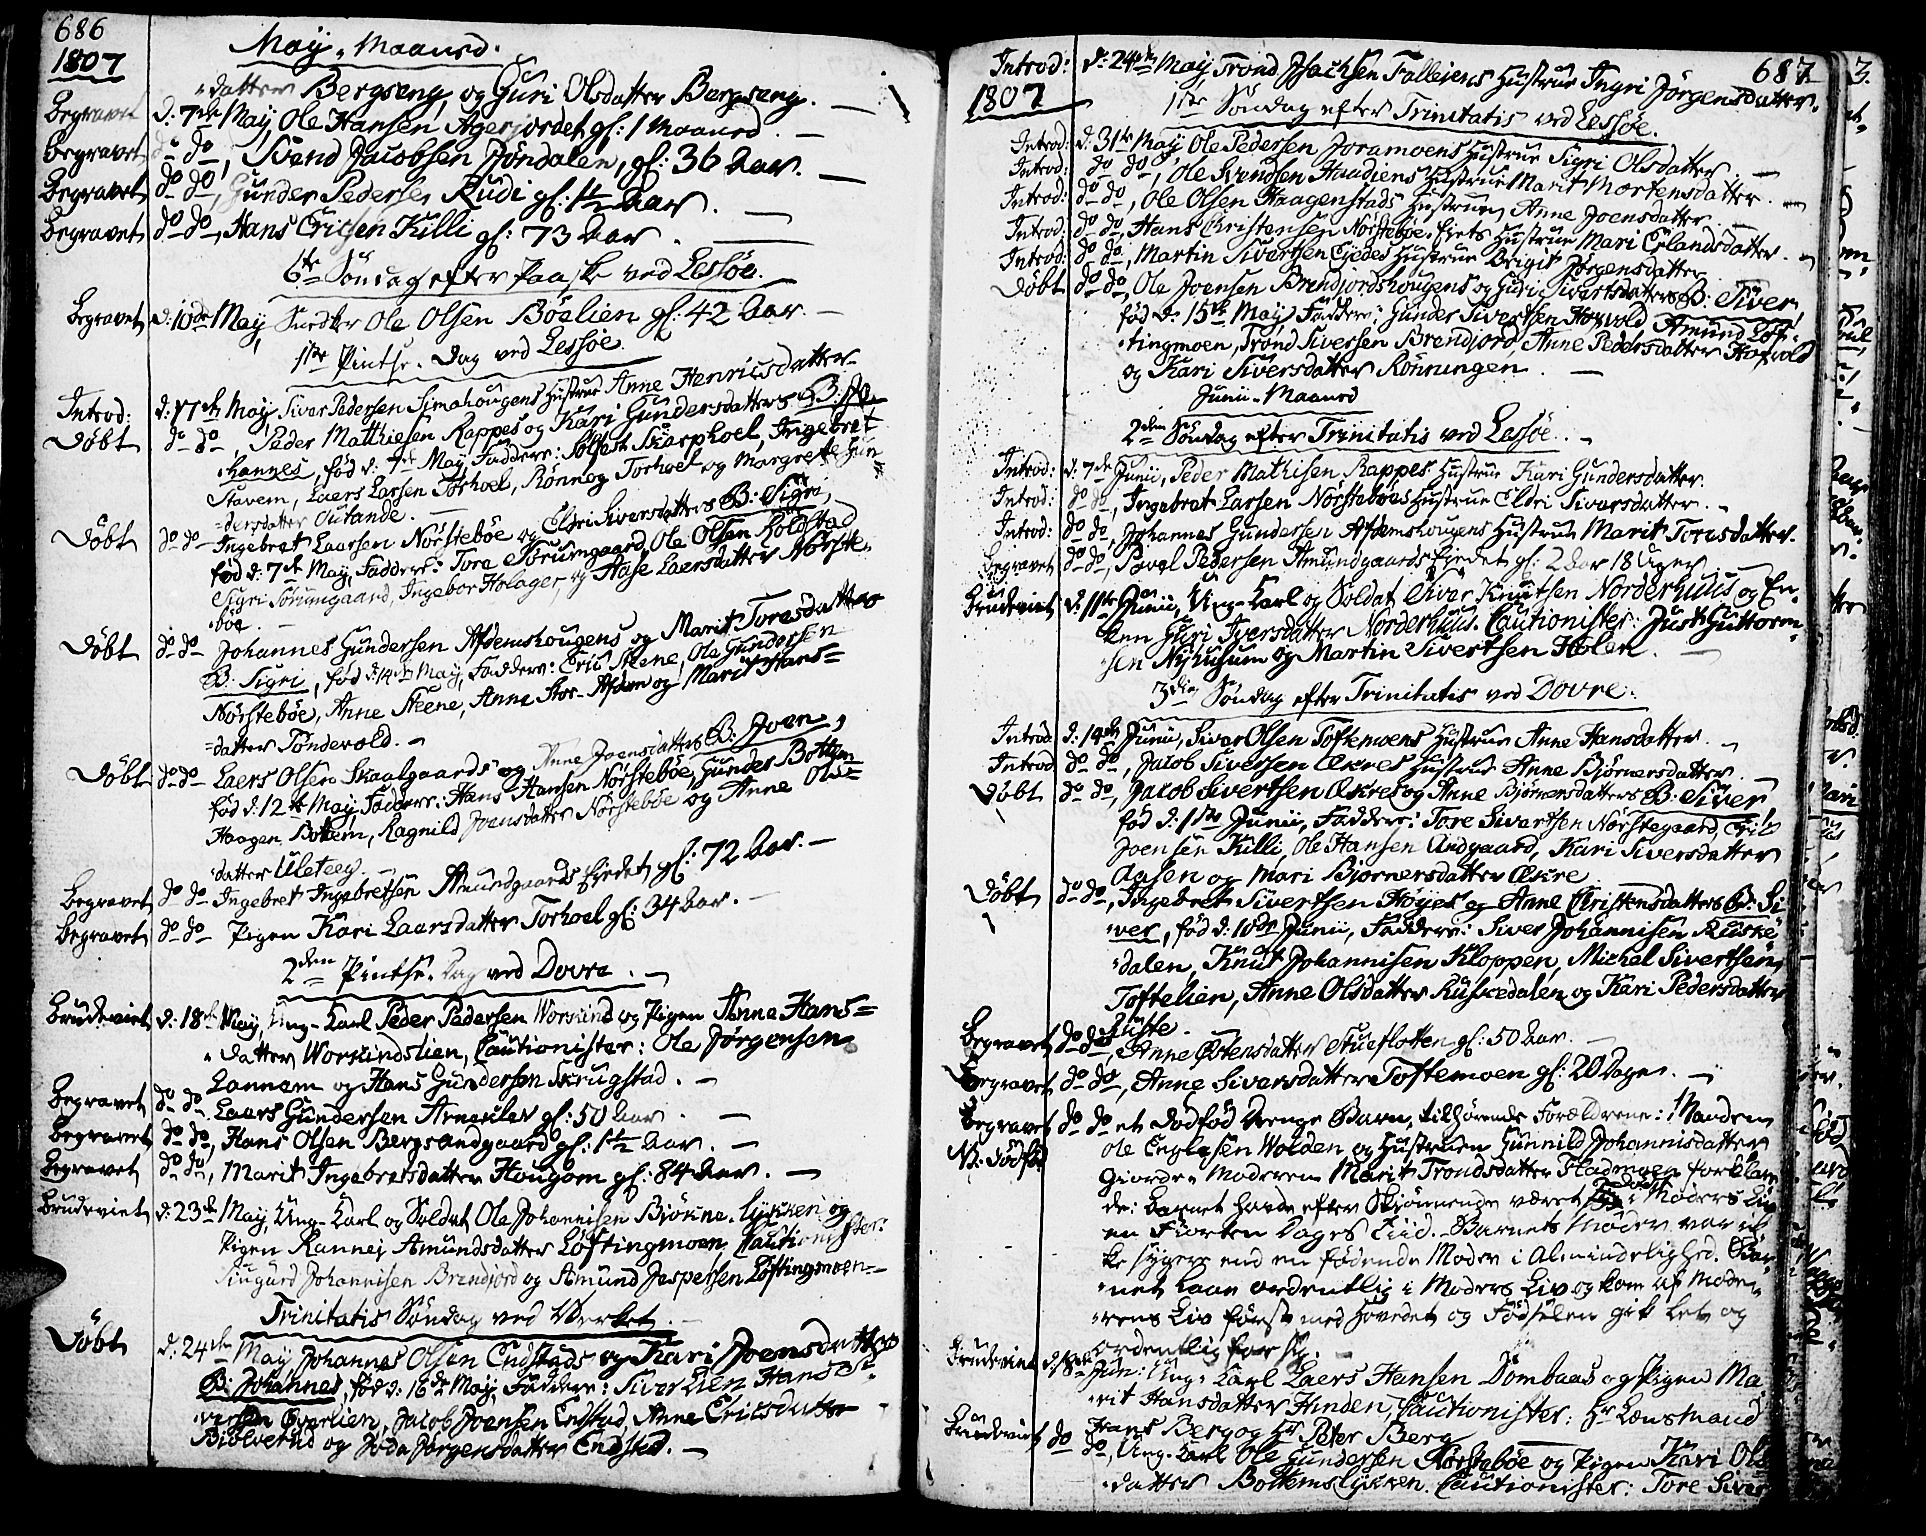 686
1807
May-Maaned.
-datter Bergseng, og Guri Olsdatter Bergseng.
Begravet d: 7de May, Ole Hansen Agerjordet gl: 1 Maaned.
Begravet do do, Svend Jacobsen Jøndalen, gl: 36 Aar.
Begravet do do, Gunder Pedersen Rudi gl: 1½ Aar.
Begravet do do, Hans Ericsen Killi gl: 73 Aar.
6te Søndag efter Paaske ved Lessøe.
Begravet d: 10de May, Ole Olsen Bøelien gl: 42 Aar.
1ste Pintse-Dag ved Lessøe.
Introd: d: 17de May Siver Pedersen Simahougens Hustrue Anne Henricsdatter.
Døbt do do, Peder Matthiesen Rappes og Kari Gundersdatters B: Jo-
-hannes, fød d: 7de May, Faddere: Solfest Skarphoel, Ingebret
Stavem, Laers Larsen Torhoel, Rønneg Torhoel og Margrete Gun
=dersdatter Outande.
Døbt do do Ingebret Laarsen Norstebøe og Eldri Siversdatters B: Sigri,
fød d: 7de May, Faddere: Tore Sørumgaard, Ole Olsen Koldstad
Sigri Sørumgaard, Ingebor Holager, og Aase Laersdatter Nørste-
-bøe.
Døbt do do Johannes Gundersen Afdemshougens og Marit Toresdatters
B: Sigri, fød d: 14de May, Faddere: Eric Steene, Ole Gundersen
Nørstebøe, Anne Steene, Anne Stor-Afdem og Marit Hans=
=datter Tøndevold.
Døbt do do Laers Olsen Skaalgaards og Anne Joensdatters B: Joen,
fød d: 12te May, Faddere: Hans Hansen Nørstebøe, Gunder Bottem
Haagen Bottem, Ragnild Joensdatter Nørstebøe og Anne Ols=
datter Uleteeg.
Begravet do do Ingebret Ingebretsen Amundgaards Eiedet gl: 72 Aar.
Begravet do do Pigen Kari Laarsdatter Torhoel gl: 34 Aar.
2den Pintse-Dag ved Dovre.
Brudeviet d: 18de May, Ung-Karl Peder Pedersen Workind og Pigen Anne Hans=
-datter Workindslien, Cautionister: Ole Jørgensen
Lannem og Hans Gundersen Skrugstad.
Begravet do do Laars Gundersen Arneklev gl: 50 Aar.
Begravet do do, Hans Olsen Bergsandgaard gl: 1½ Aar.
Begravet do do, Marit Ingebretsdatter Hougom gl: 84 Aar.
Brudeviet d: 23de May, Ung-Karl og Soldat Ole Johannisen Bjøkne-Lykken og
Pigen Rannei Amundsdatter Løftingmoen, Cautionister:
Siugurd Johannisen Brendjord og Amund Jespersen Løftingmoen.
Trinitatis Søndag ved Werket.
Døbt d: 24de May Johannes Olsen Endstads og Kari Joensdatters
B: Johannes, fød d: 16de May, Faddere: Siver Lien, Hans Si-
-versen Øverlien, Jacob Joensen Endstad, Anne Ericsdatter
Biølverud og Joda Jørgensdatter Endstad.
687
1807
Introd: d: 24de May Trond Isachsen Falleiens Hustrue Ingri Jørgensdatter.
1ste Søndag efter Trinitatis ved Lessøe.
Introd: d: 31te May Ole Pedersen Joramoens Hustrue Sigri Olsdatter.
Introd: do do, Ole Svendsen Haadiens Hustrue Marit Mortensdatter.
Introd: do do, Ole Olsen Haagenstads Hustrue Anne Joensdatter.
Introd: do do, Hans Christensen Nørstebøe-Eiets Hustrue Mari Erlandsdatter.
Introd: do do, Martin Sivertsen Eiedes Hustrue Brigit Jørgensdatter.
Døbt do do, Ole Joensen Brendjordshougens og Guri Sivertsdatters B: Siver,
fød d: 15de May, Faddere: Gunder Sivertsen Hofvold, Amund Løf-
-tingmoen, Trond Siversen Brendjord, Anne Pedersdatter Hofvold
og Kari Siversdatter Rønningen.
Junii-Maaned
2den Søndag efter Trinitatis ved Lessøe.
Introd: d: 7de Junii, Peder Mathisen Rappes Hustrue Kari Gundersdatter.
Introd: do do, Ingebret Larsen Nørstebøes Hustrue Eldri Siversdatter.
Introd: do do, Johannes Gundersen Afdemshougens Hustrue Marit Toresdatter.
Begravet do do, Povel Pedersen Amundgaards Eiedet gl: 2 Aar 18 Uger.
Brudeviet d: 11te Junii, Ung-Karl og Soldat Siver Knutsen Norderhuus og En-
ken Guri Iversdatter Norderhuus. Cautionister: Just Guttorm-
-sen Nyhusum og Martin Sivertsen Holen.
3die Søndag efter Trinitatis ved Dovre.
Introd d: 14de Junii, Siver Olsen Toftemoens Hustrue Anne Hansdatter.
Introd do do, Jacob Siversen Økres Hustrue Anne Bjørnersdatter.
Døbt do do, Jacob Sivertsen Økres og Anne Bjørnersdatters B: Siver,
fød d: 1ste Junii, Faddere: Tore Sivertsen Norstegaard, Eric
Joensen Killi, Ole Hansen Andgaard, Kari Siversdatter
Aasen og Mari Bjørnersdatter Økre.
Døbt do do, Ingebret Sivertsen Høyes og Anne Christensdatters B: Si
-ver, fød d: 10de Junii, Faddere: Siver Johannisen Ruske
-dalen, Knut Johannisen Kloppen, Michel Sivertsen
Toftelien, Anne Olsdatter Ruskedalen og Kari Pedersdatter
Ruste.
Begravet do do, Anne Østensdatter Stueflotten gl: 50 Aar.
Begravet do do, Anne Siversdatter Toftemoen gl: 20 Dage.
Begravet do do et dødfød Drenge Barn, tilhørende Forældrene: Manden
N: Dødfød Ole Englesen Wolden og Hustruen Gunnild Johannisdatter,
Giorde-Moderen Marit Trondsdatter Fladmoen forklare
de: Barnet havde efter Skjønnende været død i Moders Liv
en Fiorten Dages Tiid. Barnets Moder var ik
ke sygere end en fødende Moder i Almindelighed. Bar-
-net laae ordentlig i Moders Liv og kom af Mode-
-rens Liv først med Hovedet og Fødselen gik let og
ordentlig for sig.
Brudeviet d: 18de Jun: Ung-Karl Laers Hansen Dombaas og Pigen Ma
rit Hansdatter Hinden, Cautionister: Hr Lensmand
Hans Berg og Hr Peter Berg
Brudeviet do do, Ung-Karl Ole Gundersen Nørstebøe og Pigen Kari Ols
-datter Bottemslykken. Cautionister: Tore Siver